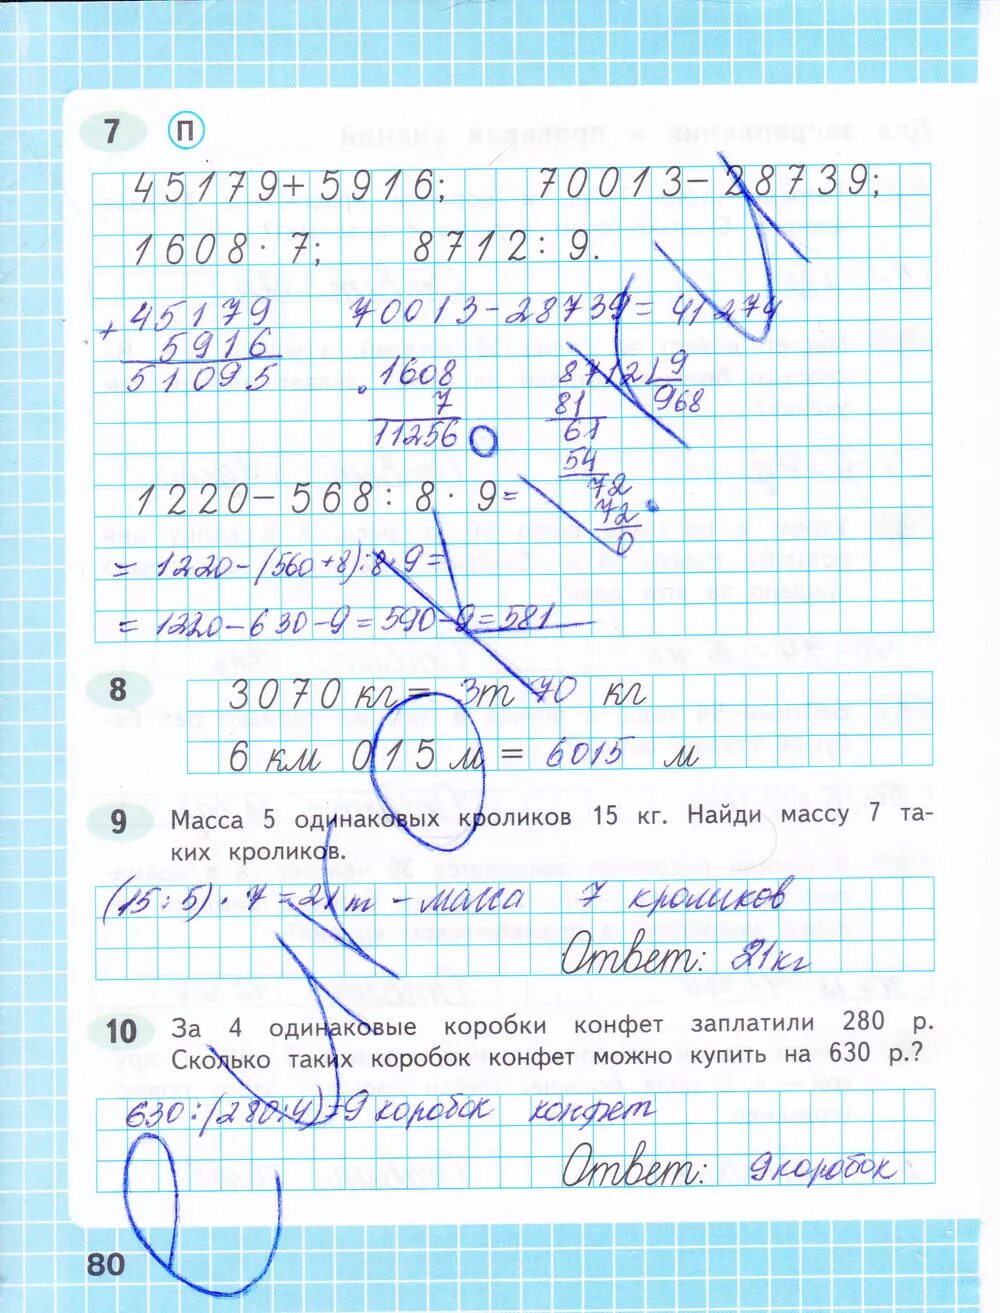 7 П
45179+5916; 70013-28739;
1608·7; 8712:9.
+45179 70013-28739=41274
5916
51095
·1608
7
11256
8712 9
81 968
61
54
72
72
0
1220-568:8·9=
=1220-(560+8):8·9=
=1220-630-9=590-9=581
8 3070 кг= 3т 70 кг
6 км 015 м = 6015 м
9 Масса 5 одинаковых кроликов 15 кг. Найди массу 7 та-
ких кроликов.
(15:5)·7=21 - масса 7 кроликов
Ответ: 21кг
10 За 4 одинаковые коробки конфет заплатили 280 р.
Сколько таких коробок конфет можно купить на 630 р.?
630:(280:4)=9 коробок конфет
Ответ: 9коробок
80